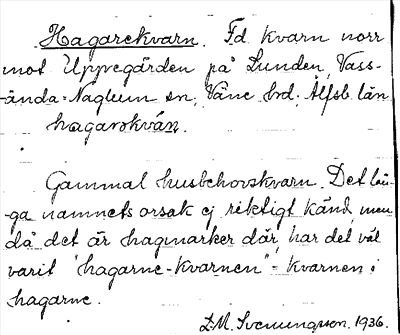 Hagarekvarn. Fd kvarn norr
mot Uppregården på Lunden, Vass-
ända-Naglum sn, Väne hd. Älfsb. län
hagarokván.
Gammal husbehovskvarn. Det lån-
ga namnets orsak ej riktigt känd, men
då det är hagmarker där, har det väl
varit "hagarne-kvarnen" = kvarnen i
hagarne.
L.M. Svenungson. 1936.